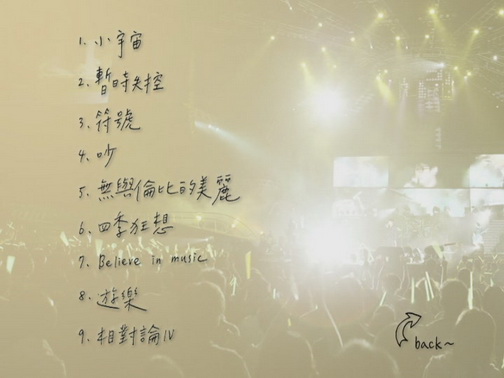 1. 小宇宙
2. 暫時失控
3. 符號
4. 吵
5. 無與倫比的美麗
6. 四季狂想
7. Believe in music
8. 遊樂
9. 相對論IV
back~